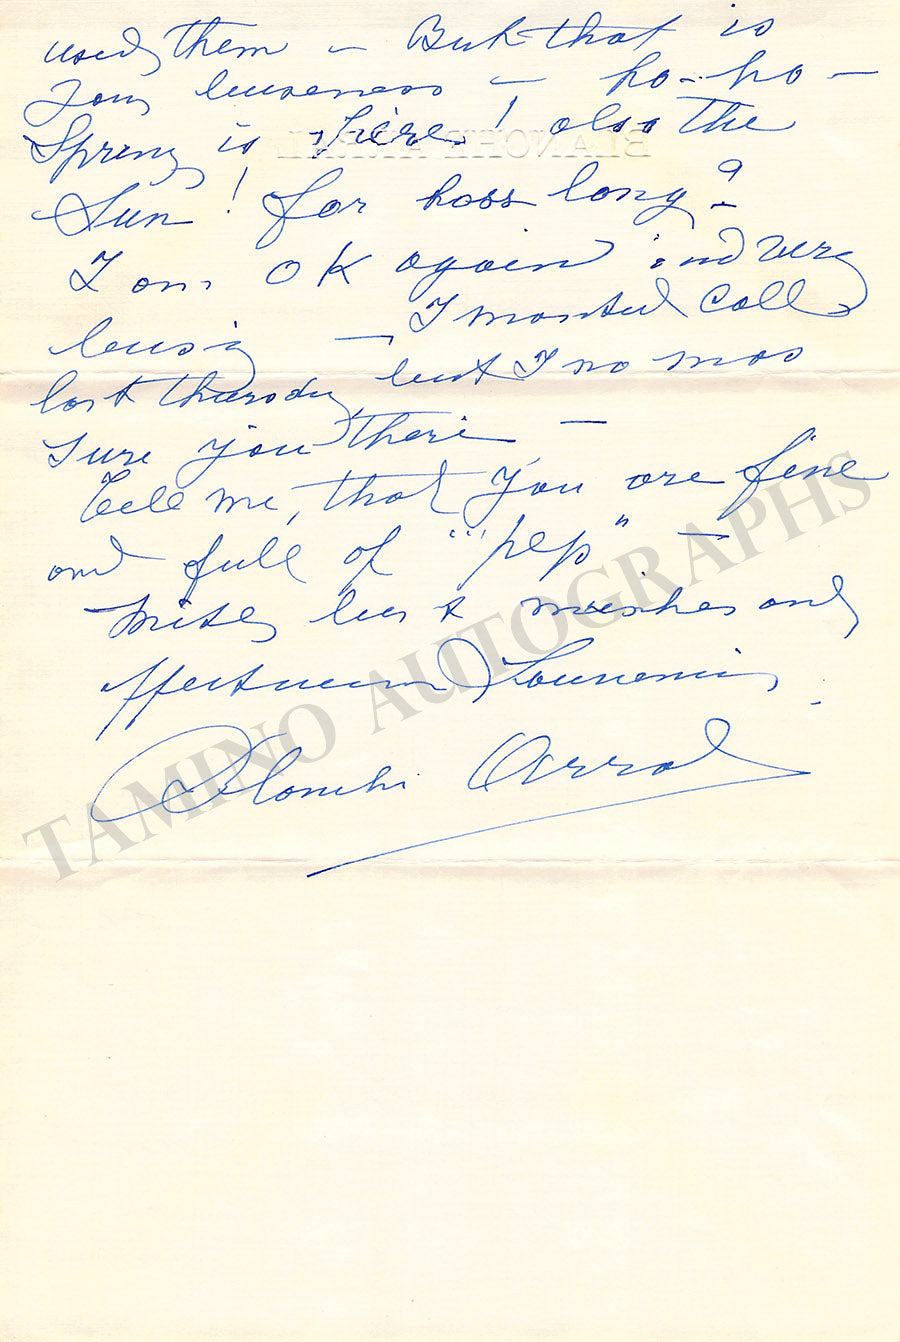 used them – But that is
your buseness – ho-ho –
Spring is here! also the
Sun! for how long?
I am OK again and very
busy – I wanted call
last thursday, but I no was
sure you there –
Tell me, that you are fine
and full of "pep" –
With best wishes and
affectueux Souvenir.
Blanche Arral
BLANCHE ARRAL
TAMINO AUTOGRAPHS